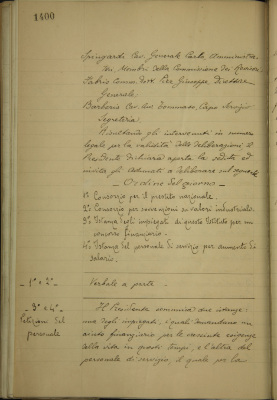 1400
Springardi Cav. Generale Carlo, Amministra-
tori Membri della Commissione dei Revisori
Fabris Comm. Dott. Pier Giuseppe, Direttore
Generale;
Barberis Cav. Avv. Tommaso, Capo Servizio
Segreteria.
Riscontrando gli intervenuti in numero
legale per la validità delle deliberazioni il
Presidente dichiara aperta la seduta ed
invita gli adunati a deliberare sul seguente
- Ordine del giorno -
1° Consorzio per il prestito nazionale.
2° Consorzio per sovvenzioni su valori industriali.
3° Istanza degli impiegati di questo Istituto per un
concorso finanziario.
4° Istanza del personale di servizio per aumento di
salario.
- 1° e 2° -
Verbali a parte.
- 3° e 4° -
Petizioni del
personale
Il Presidente comunica due istanze:
una degli impiegati, i quali domandano un
aiuto finanziario per le cresciute esigenze
della vita in questi tempi, e l'altra del
personale di servizio, il quale per la